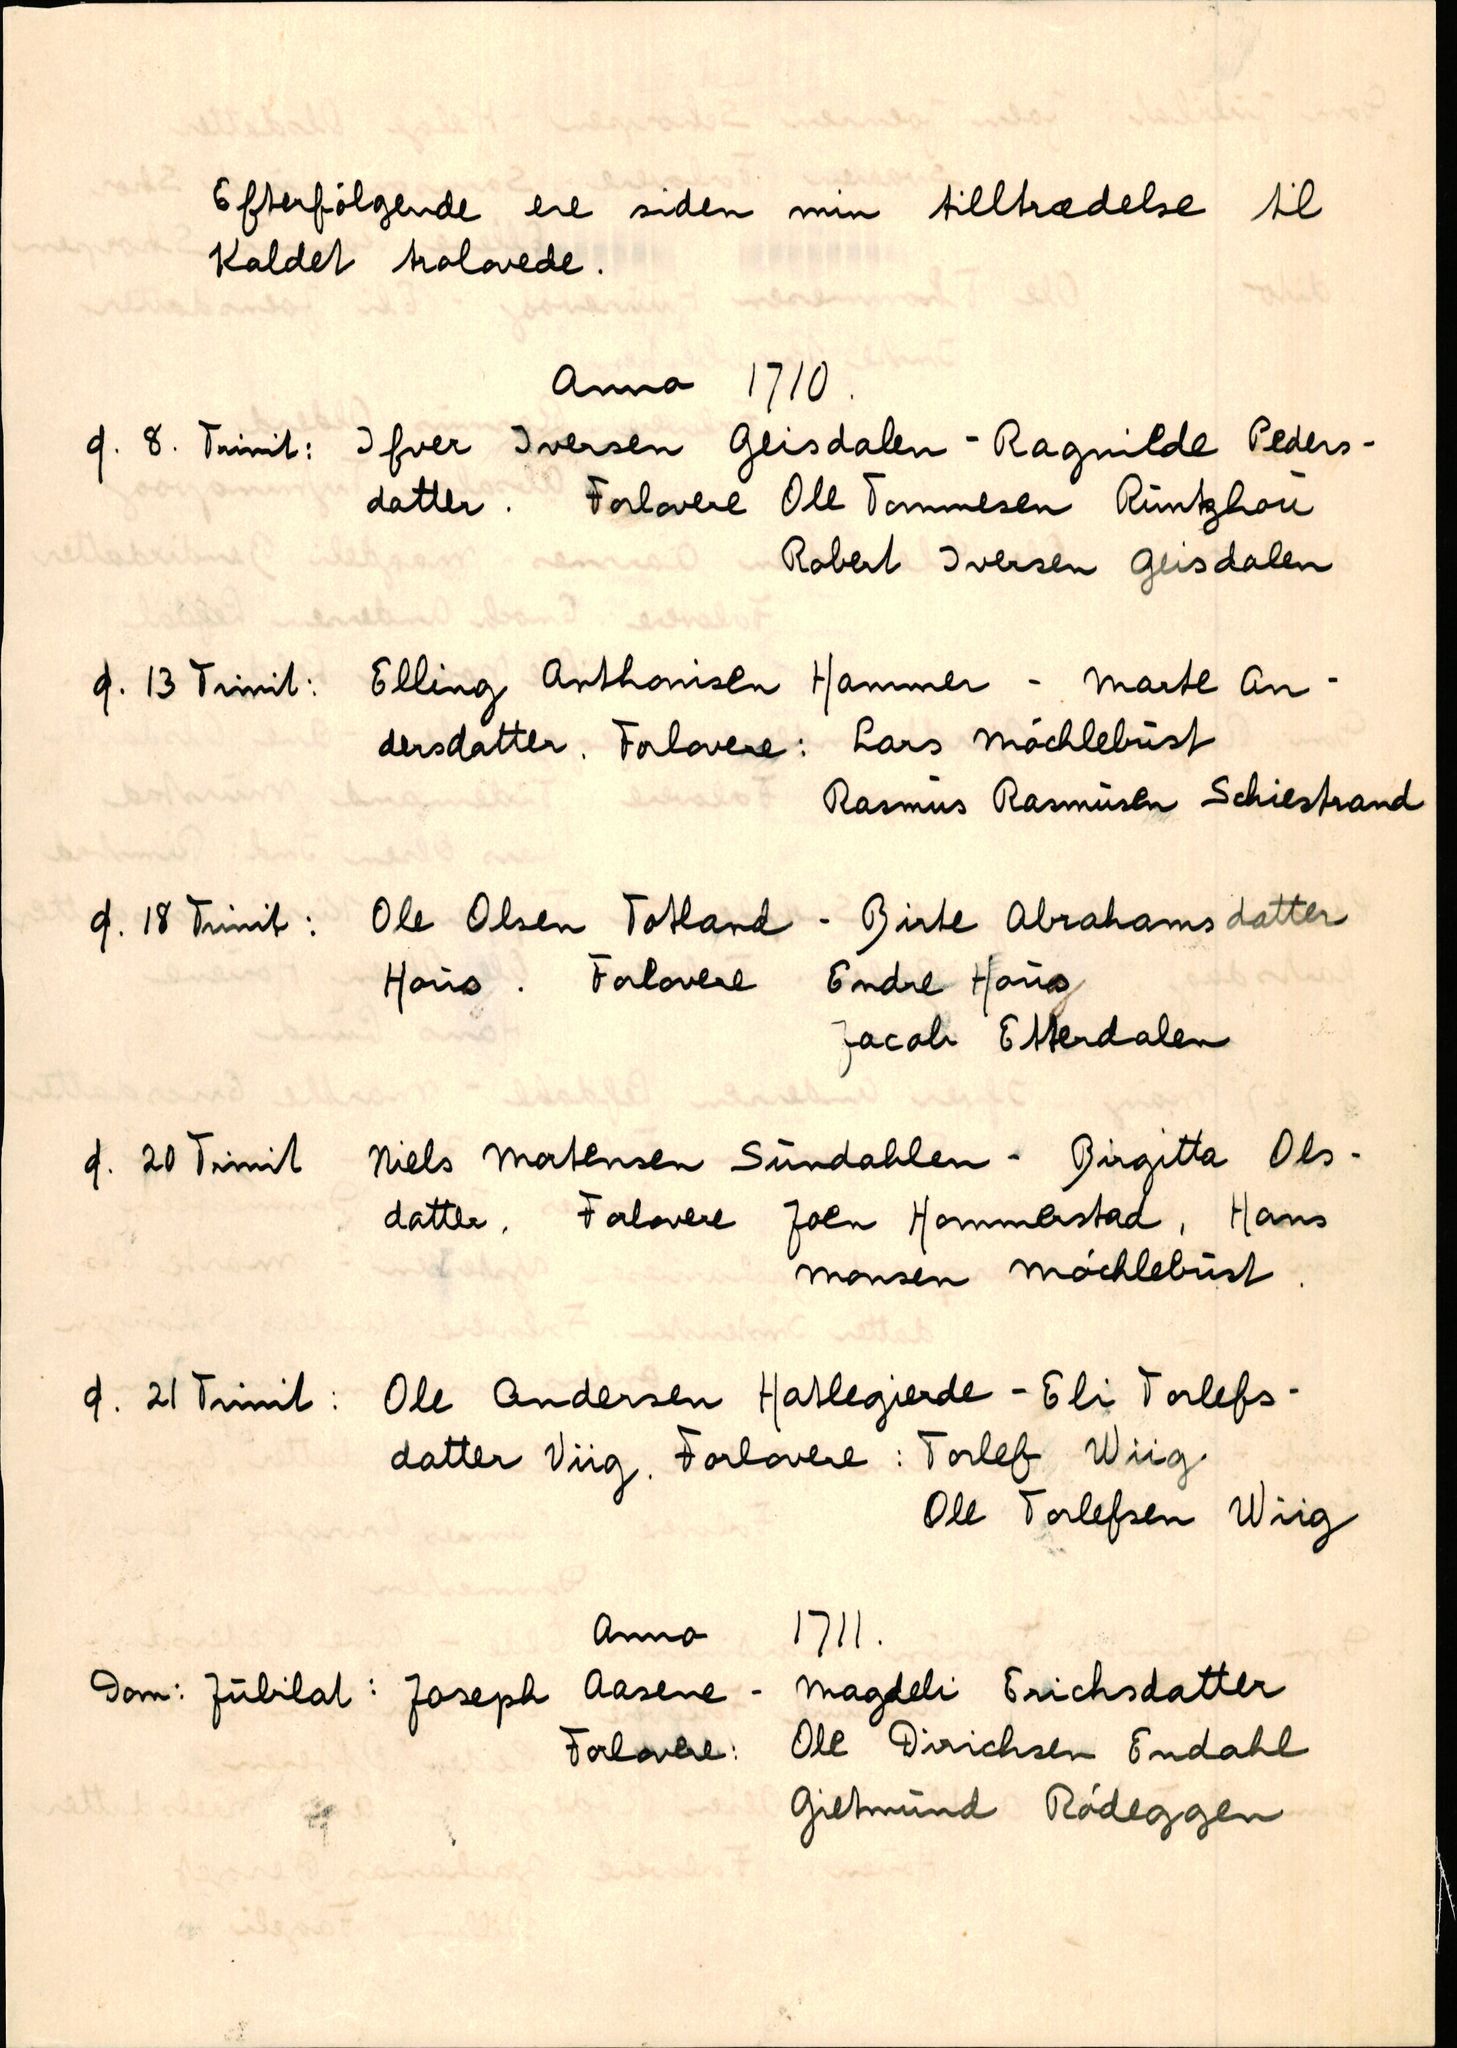 Efterfølgende ere siden min tilltrædelse til
Kaldet trolovede.
Anno 1710.
d. 8. Trinit: Ifver Iversen Geisdalen - Ragnilde Peders-
datter. Forlovere Ole Tommesen Rüntzhoü
Robert Iversen Geisdalen
d. 13 Trinit: Elling Anthonisen Hammer - Marte An-
dersdatter. Forlovere: Lars Móchlebüst
Rasmüs Rasmüsen Schiestrand
d. 18 Trinit: Ole Olsen Totland - Birte Abrahamsdatter
Hoüs. Forlovere Endre Hoüg
Jacob Etterdalen
d. 20 Trinit Niels Mortensen Sündahlen - Birgitta Ols-
datter. Forlovere Joen Hammerstad, Hans
Monsen Móchlebüst.
d. 21 Trinit: Ole Andersen Hatlegierde - Eli Torlefs-
datter Viig. Forlovere: Torlef Wiig
Ole Torlefsen Wiig
Anno 1711.
Dom: Jübilat: Joseph Aasene - Magdeli Erichsdatter
Forlovere: Ole Dirichsen Endahl
Gietmünd Ródeggen